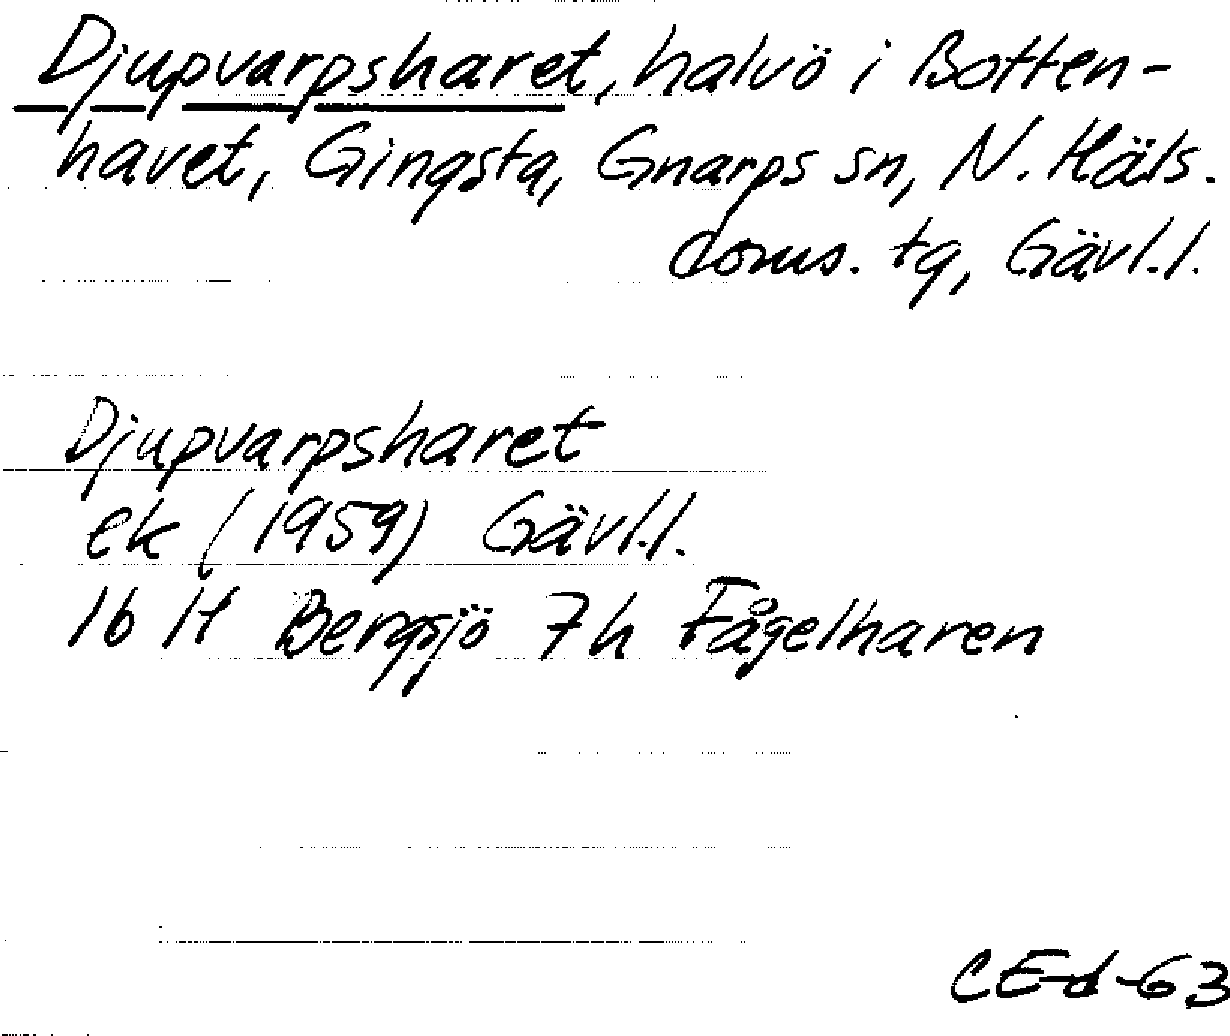 Djupvarpsharet, halvö i Botten-
havet, Gingsta, Gnarps sn, N. Häls.
doms. tg, Gävl.l.
Djupvarpsharet
ek (1959) Gävl.l.
16 H Bergsjö 7h Fågelharen
CEd-63